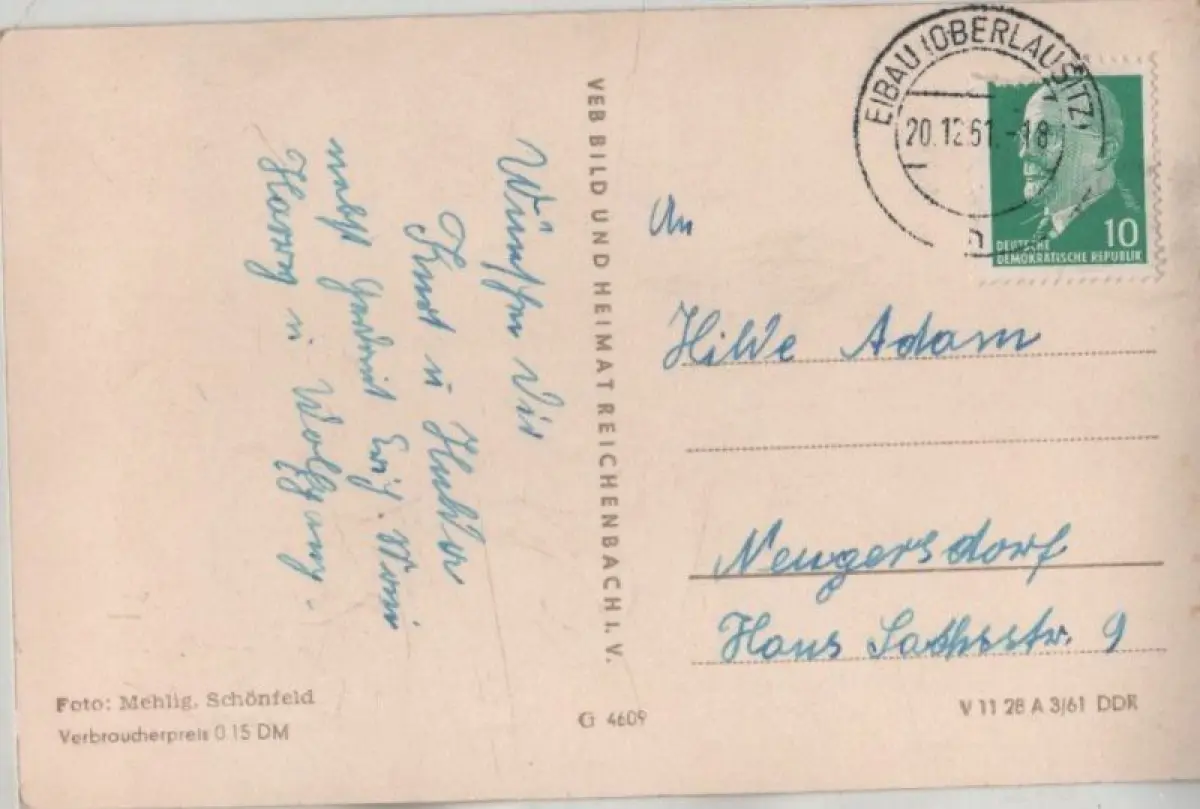 Wünschen Dir
Kurt u
nebst
Harry u Wolfgang.
VEB BILD UND HEIMAT REICHENBACH I. V.
EIBAU (OBERLAUSITZ)
20.12.61.-18
h
10
DEUTSCHE
DEMOKRATISCHE REPUBLIK
An
Hilde Adam
Neugersdorf
Hans Sachsstr. 9
Foto: Mehlig, Schönfeld
Verbraucherpreis 0.15 DM
G 4609
V 11 28 A 3/61 DDR